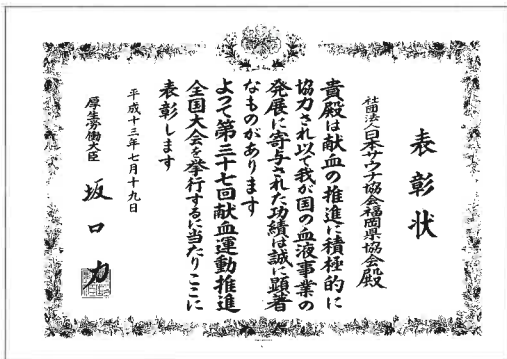 表彰状
社団法人日本サウナ協会福岡県協会殿
貴殿は献血の推進に積極的に
協力され以て我が国の血液事業の
発展に寄与された功績は誠に顕著
なものがあります
よって第三十七回献血運動推進
全国大会を挙行するに当たりここに
表彰します
平成十三年七月十九日
厚生労働大臣
坂口力